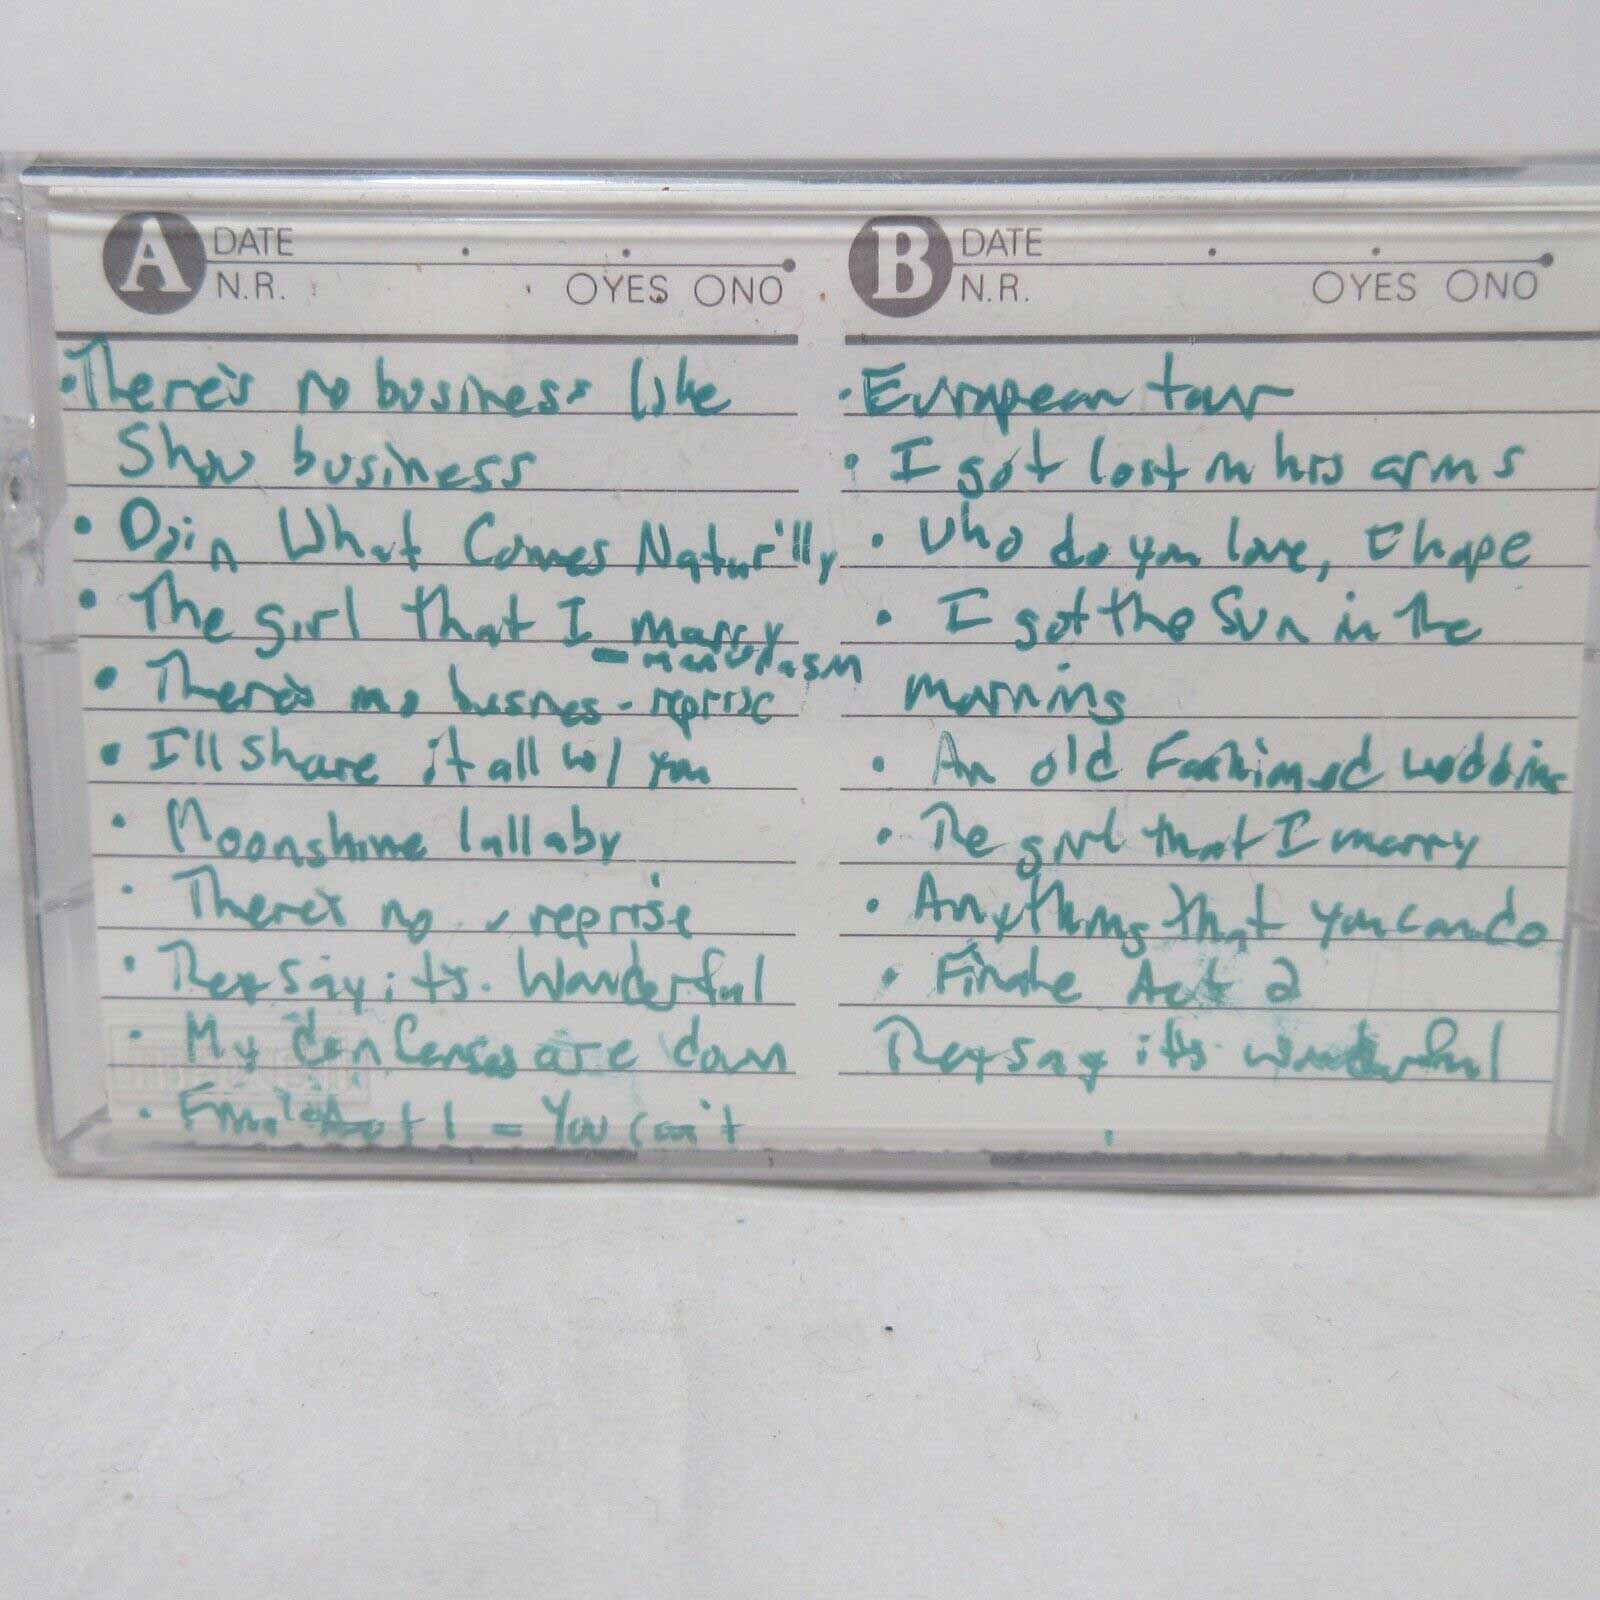 A DATE
N.R. OYES ONO
• There's no business like
Show business
• Doin What Comes Natur'lly
• The girl that I marry
• There's no busnes - reprise
• I'll share it all w/ you
• Moonshine lallaby
• There's no reprise
• They say it's Wonderful
• My are down
• Finale Act 1 = You can't
B DATE
N.R. OYES ONO
• European tour
• I got lost in his arms
• Who do you love, I hope
• I got the Sun in the
morning
• An old Fashioned wedding
• The girl that I marry
• Anything that you can do
• Finale Act 2
They say it's wonderful